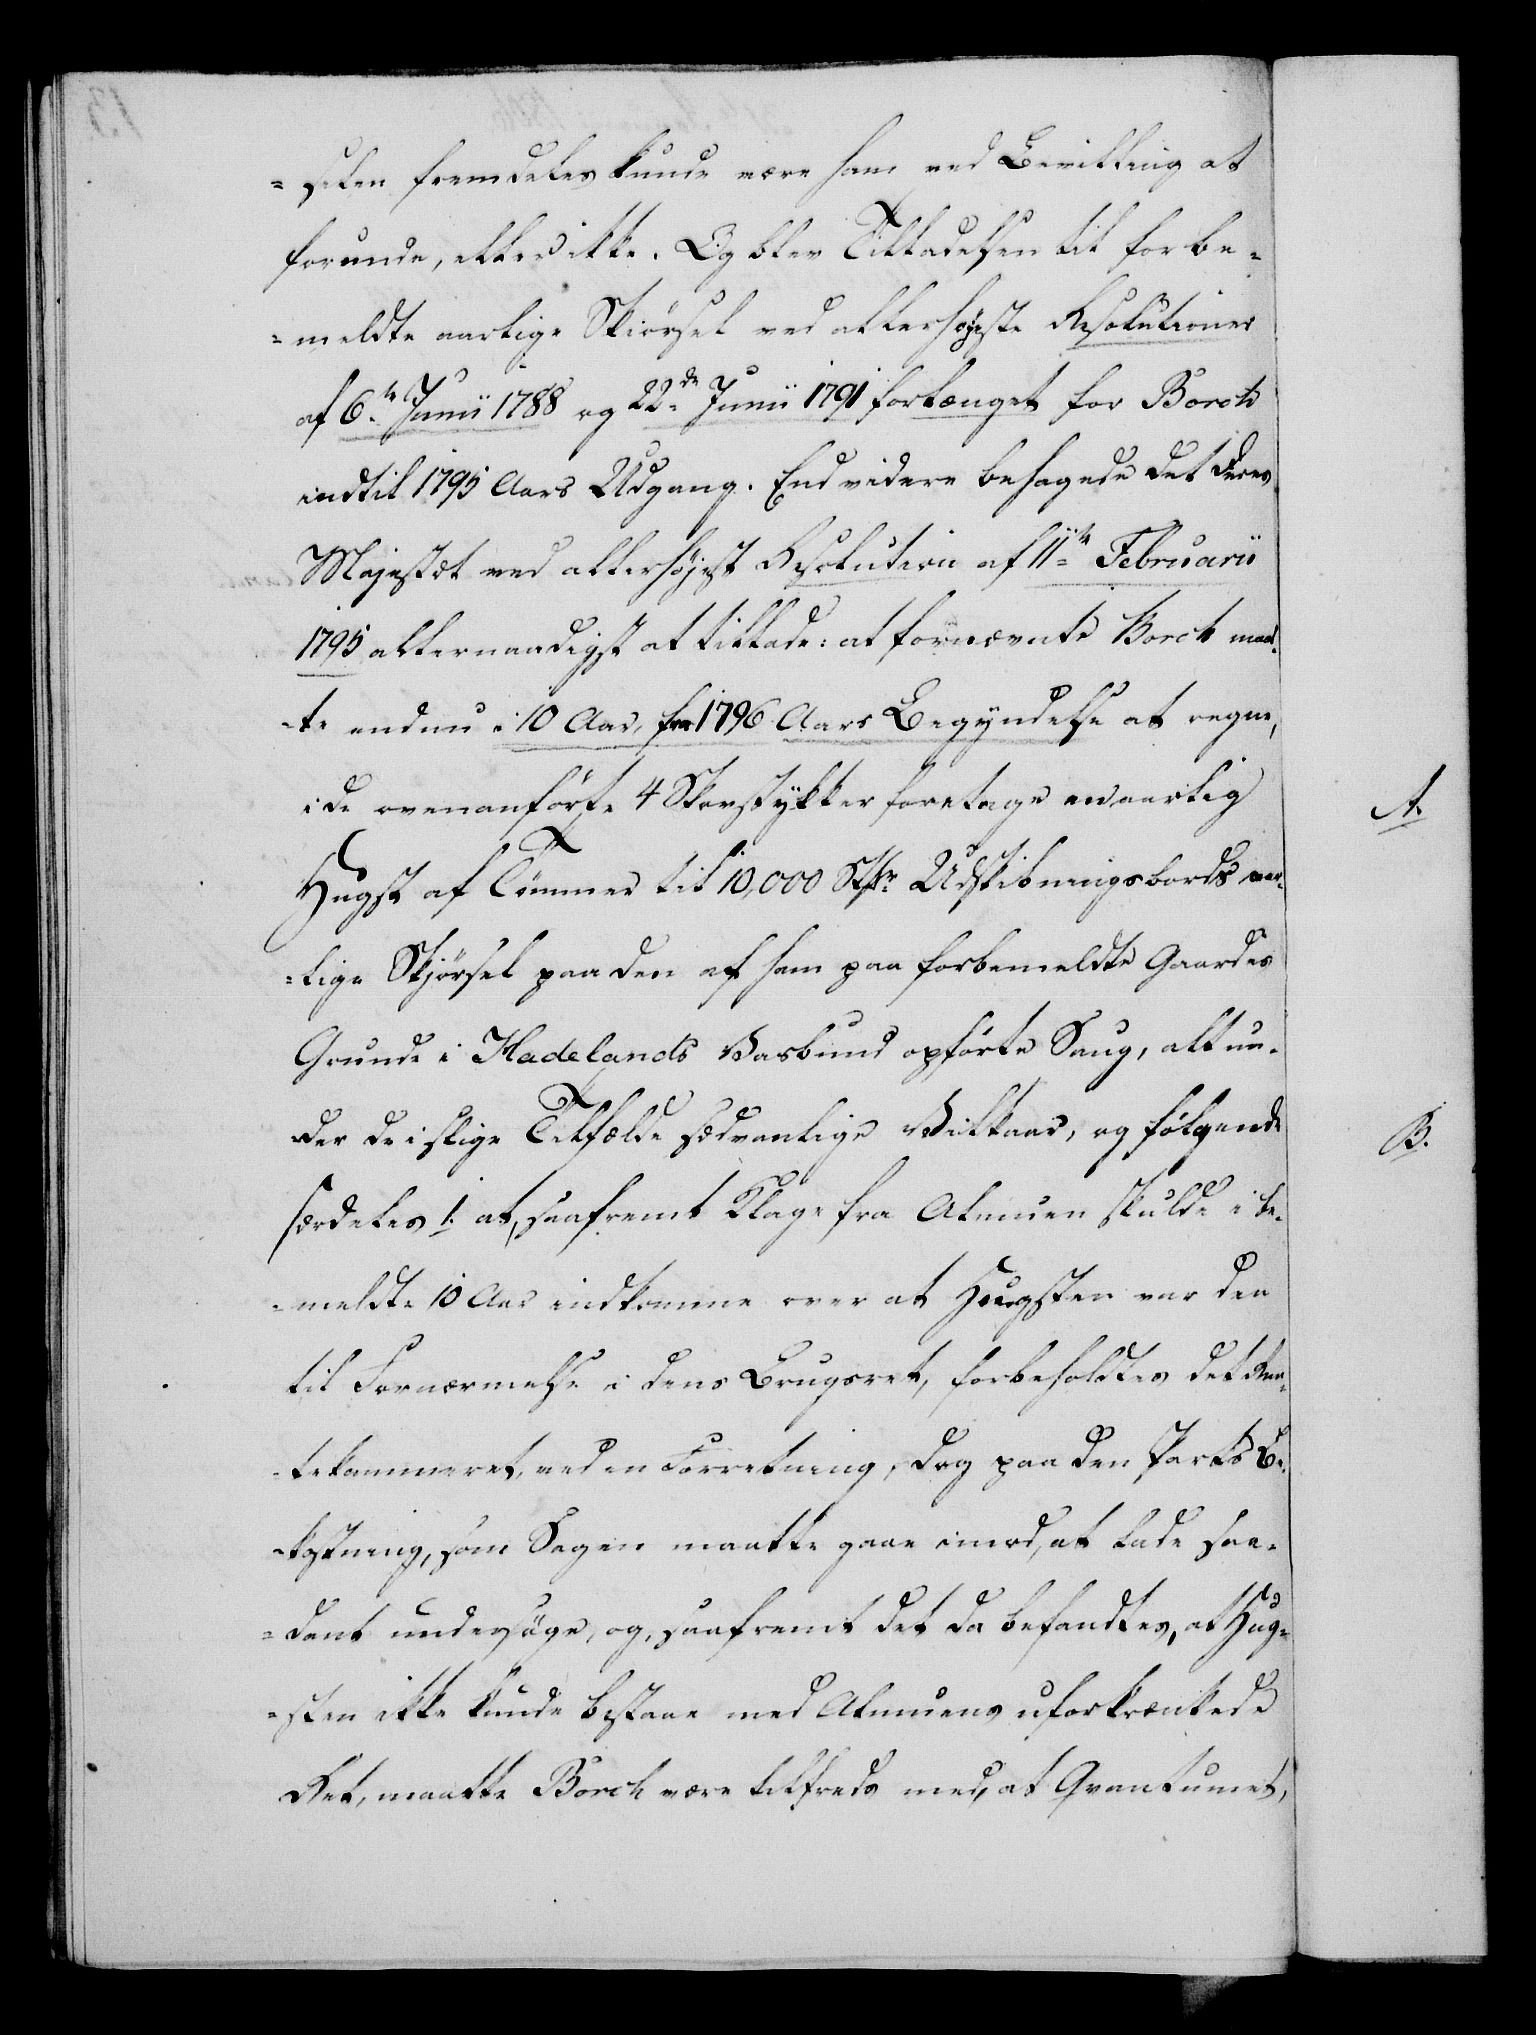 =selen fremdeles kunde være ham ved Bevilling at
forunde, eller ikke. Og blev Tilladelsen til forbe-
=meldte aarlige Skiørsel ved allerhøjeste Resolutioner
af 6te Junii 1788 og 22de Junii 1791 forlænget for Borch
indtil 1795 Aars Udgang. End videre behagede det Deres
Majestæt ved allerhøjst Resolution af 11te Februarii
1795 allernaadigst at tillade: at fornævnte Borch maat-
-te endnu i 10 Aar, fra 1796 Aars Begyndelse at regne,
i de ovenanførte 4 Skovstykker foretage en aarlig
A.
Hugst af Tømmer til 10,000 Stkr Udskibningsbords aar-
-lige Skjørsel paa den af ham paa forbemeldte Gaardes
Grunde i Hadelands Vasbund opførte Saug, alt un-
der de i slige Tilfælde sædvanlige Vilkaar, og følgende
B.
særdeles 1. at, saafremt Klage fra Almuen skulde i be-
-meldte 10 Aar indkomme over at Hugsten var den
til Fornærmelse i dens Brugsret, forbeholdtes det Ren-
-tekammeret, ved en Forretning, dog paa den Parts Be-
-kostning, som Sagen maatte gaae imod, at lade saa-
=dant undersøge, og, saafremt det da befandtes, at Hug-
-sten ikke kunde bestaae med Almuens uforkrænkede
Ret, maatte Borch være tilfreds med, at Qvantumet,